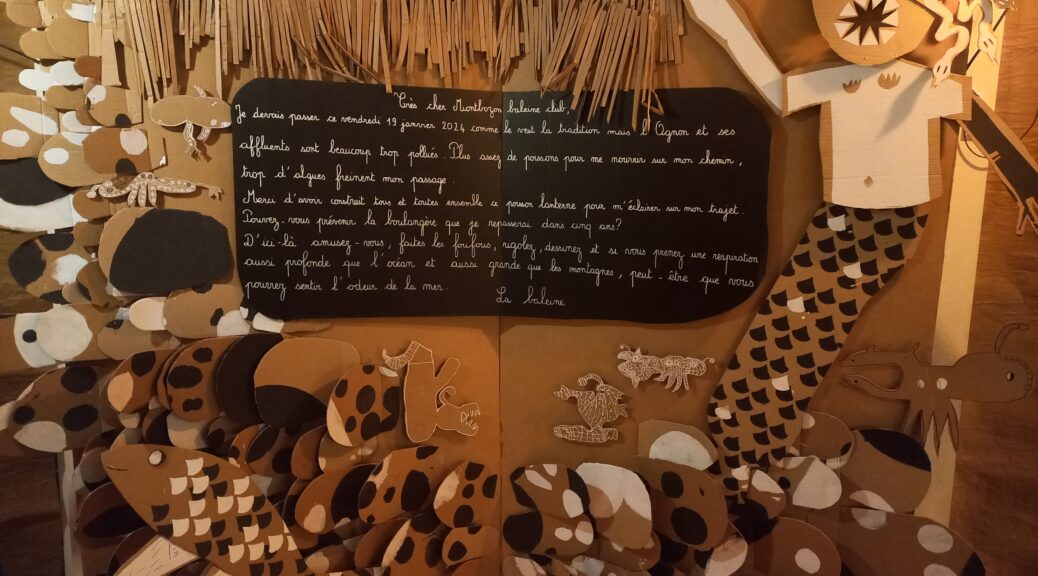 Très cher Montbozon baleine club,
Je devais passer ce vendredi 19 janvier 2024 comme le veut la tradition mais l'Ognon et ses
affluents sont beaucoup trop pollués. Plus assez de poissons pour me nourrir sur mon chemin,
trop d'algues freinent mon passage.
Merci d'avoir construit tous et toutes ensemble ce poisson lanterne pour m'éclairer sur mon trajet
Pouvez-vous prévenir la boulangère que je repasserai dans cinq ans?
D'ici-là amusez-vous, faites les foufous, rigolez, dessinez et si vous prenez une respiration
aussi profonde que l'océan et aussi grande que les montagnes, peut-être que vous
pourrez sentir l'odeur de la mer.
La baleine